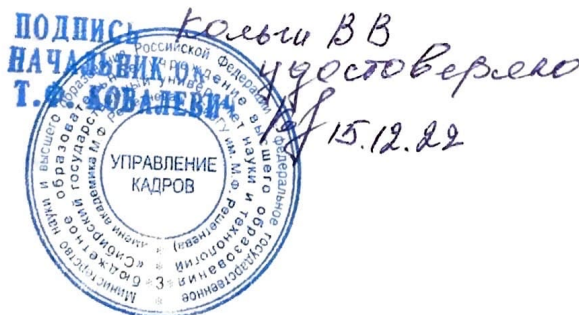 ПОДПИСЬ Кольги ВВ
НАЧАЛЬНИК ОК удостоверяю
Т.Ф. КОВАЛЕВИЧ
15.12.22
Министерство науки и высшего образования Российской Федерации
Федеральное государственное бюджетное образовательное учреждение высшего образования
«Сибирский государственный университет науки и технологий
имени академика М.Ф. Решетнева»
УПРАВЛЕНИЕ
КАДРОВ